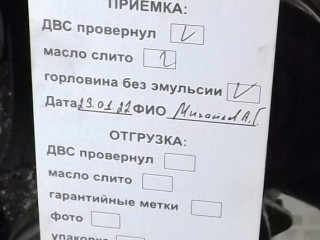 ПРИЕМКА:
ДВС провернул
масло слито
горловина без эмульсии
Дата 23.01.22 ФИО Михайлов А.Г
ОТГРУЗКА:
ДВС провернул
масло слито
гарантийные метки
фото
упаковка